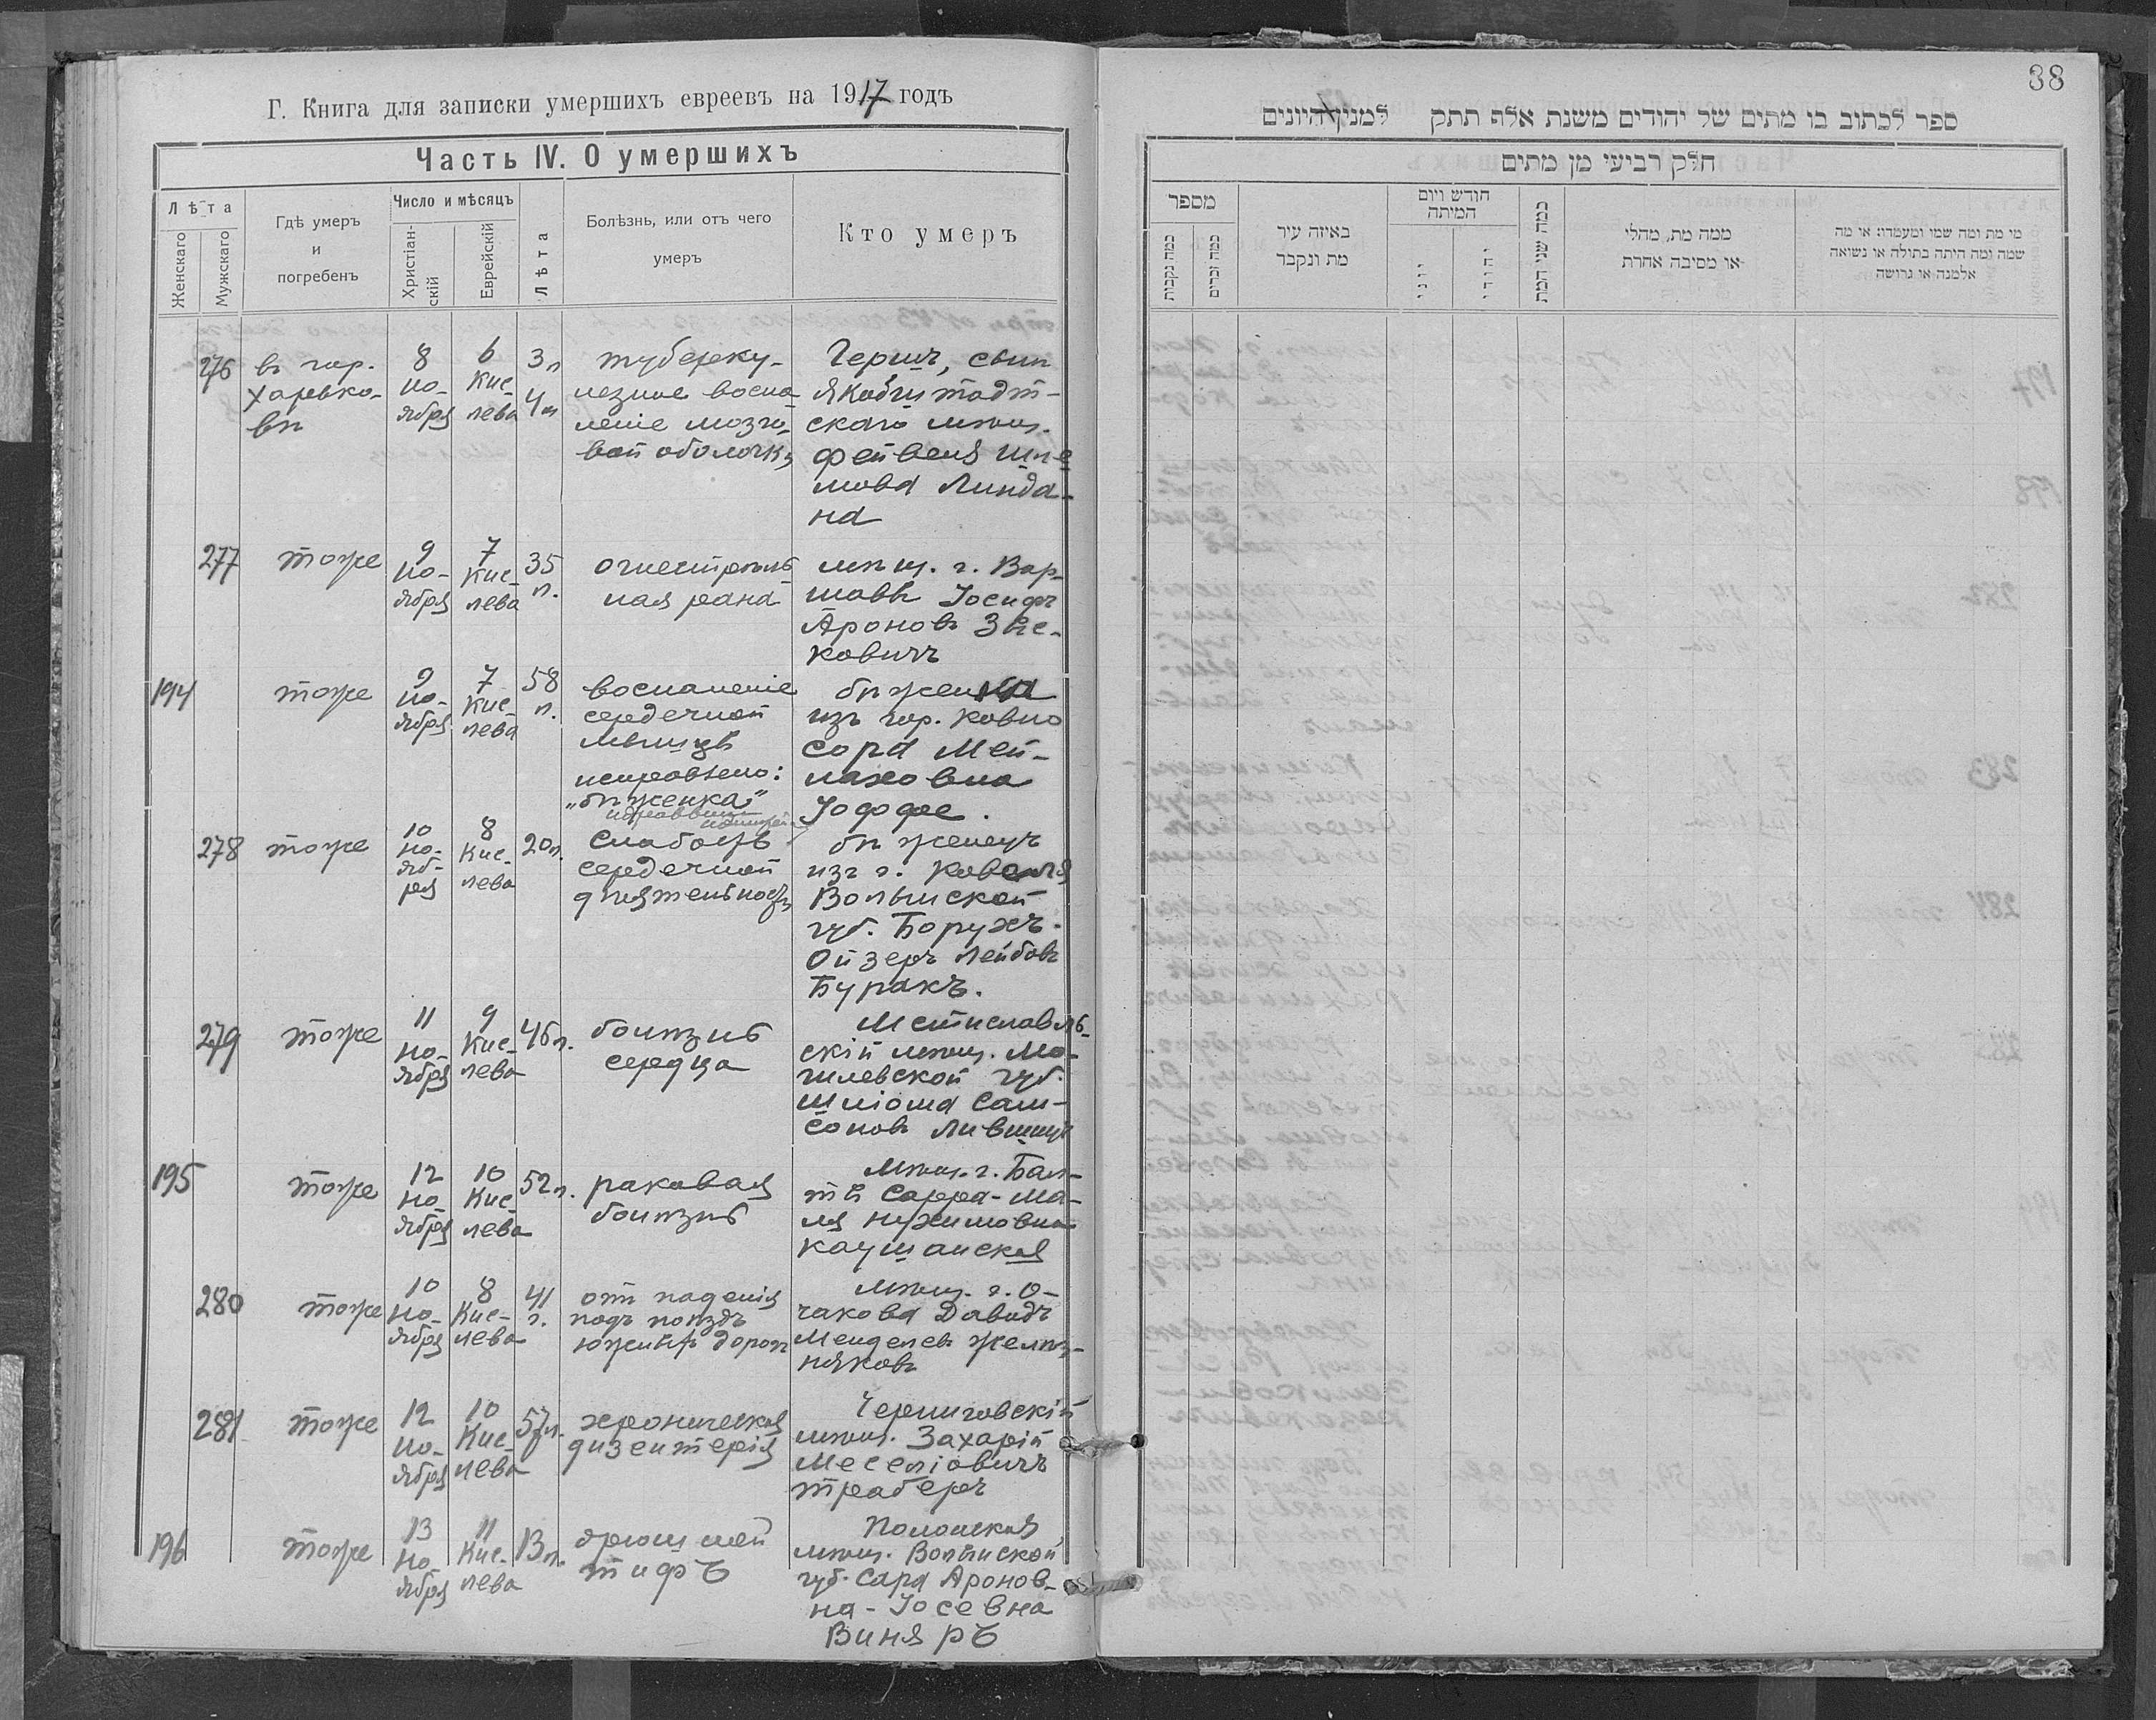 Г. Книга для записки умершихъ евреевъ на 1917 годъ
Часть IV. О умершихъ
Лѣта
Женскаго
Мужскаго
Гдѣ умеръ
и
погребенъ
Число и мѣсяцъ
Христіан-
скій
Еврейскій
Лѣта
Болѣзнь, или отъ чего
умеръ
Кто умеръ
276
въ гор.
Харько-
вѣ
8
но-
ября
6
Кис-
лева
3 л
4 м
туберку-
лезное воспа
леніе мозго-
вой оболочки
Гершъ, сынъ
Якобштадт-
скаго мѣщ.
Фейвеля Шле
мова Линда-
на
277
тоже
9
но-
ября
7
Кис-
лева
35
л.
огнестрѣль
ная рана
мѣщ. г. Вар-
шавы Іосифъ
Ароновъ
ковичъ
194
тоже
9
но-
ября
7
Кис-
лева
58
л.
воспаленіе
сердечной
мышцы
исправлено:
„бѣженка“
бѣженка
изъ гор. Ковно
Сора Мей-
лаховна
Іоффе.
278
тоже
10
но-
яб-
ря
8
Кис-
лева
20 л.
Слабость
сердечной
дѣятельности
бѣженецъ
изъ г. Ковеля
Волынской
губ. Борухъ-
Ойзеръ Лейбовъ
Буракъ.
279
тоже
11
но-
ября
9
Кис-
лева
46 л.
болѣзнь
сердца
Мстиславль-
скій мѣщ. Мо-
гилевской губ.
Шліома Сам-
соновъ Лившицъ
195
тоже
12
но-
ября
10
Кис-
лева
52 л.
раковая
болѣзнь
Мѣщ. г. Бал-
ты Сарра-Ма-
ля Нухимовна
Каушанская
280
тоже
10
но-
ября
8
Кис-
лева
41
г.
отъ паденія
подъ поѣздъ
южныхъ дорогъ
Мѣщ. г. О-
чакова Давидъ
Менделевъ Желѣз-
няковъ
281
тоже
12
но-
ября
10
Кис-
лева
57 л.
хроническая
дизентерія
Черниговскій
мѣщ. Захарій
Меселіовичъ
Траберъ
196
тоже
13
но-
ября
11
Кис-
лева
13 л.
брюшной
тифъ
Полонская
мѣщ. Волынской
губ. Сара Аронов-
на-Іосевна
Виняръ
38
ספר לכתוב בו מתים של יהודים משנת אלף תתק למנין היונים
חלק רביעי מן מתים
מספר
כמה נקבות
כמה זכרים
באיזה עיר
מת ונקבר
חודש ויום
המיתה
יוני
יהודי
כמה שני המת
ממה מת, מחלי
או מסיבה אחרת
מי מת ומה שמו ומעמדו: או מה
שמה ומה היתה בתולה או נשואה
אלמנה או גרושה